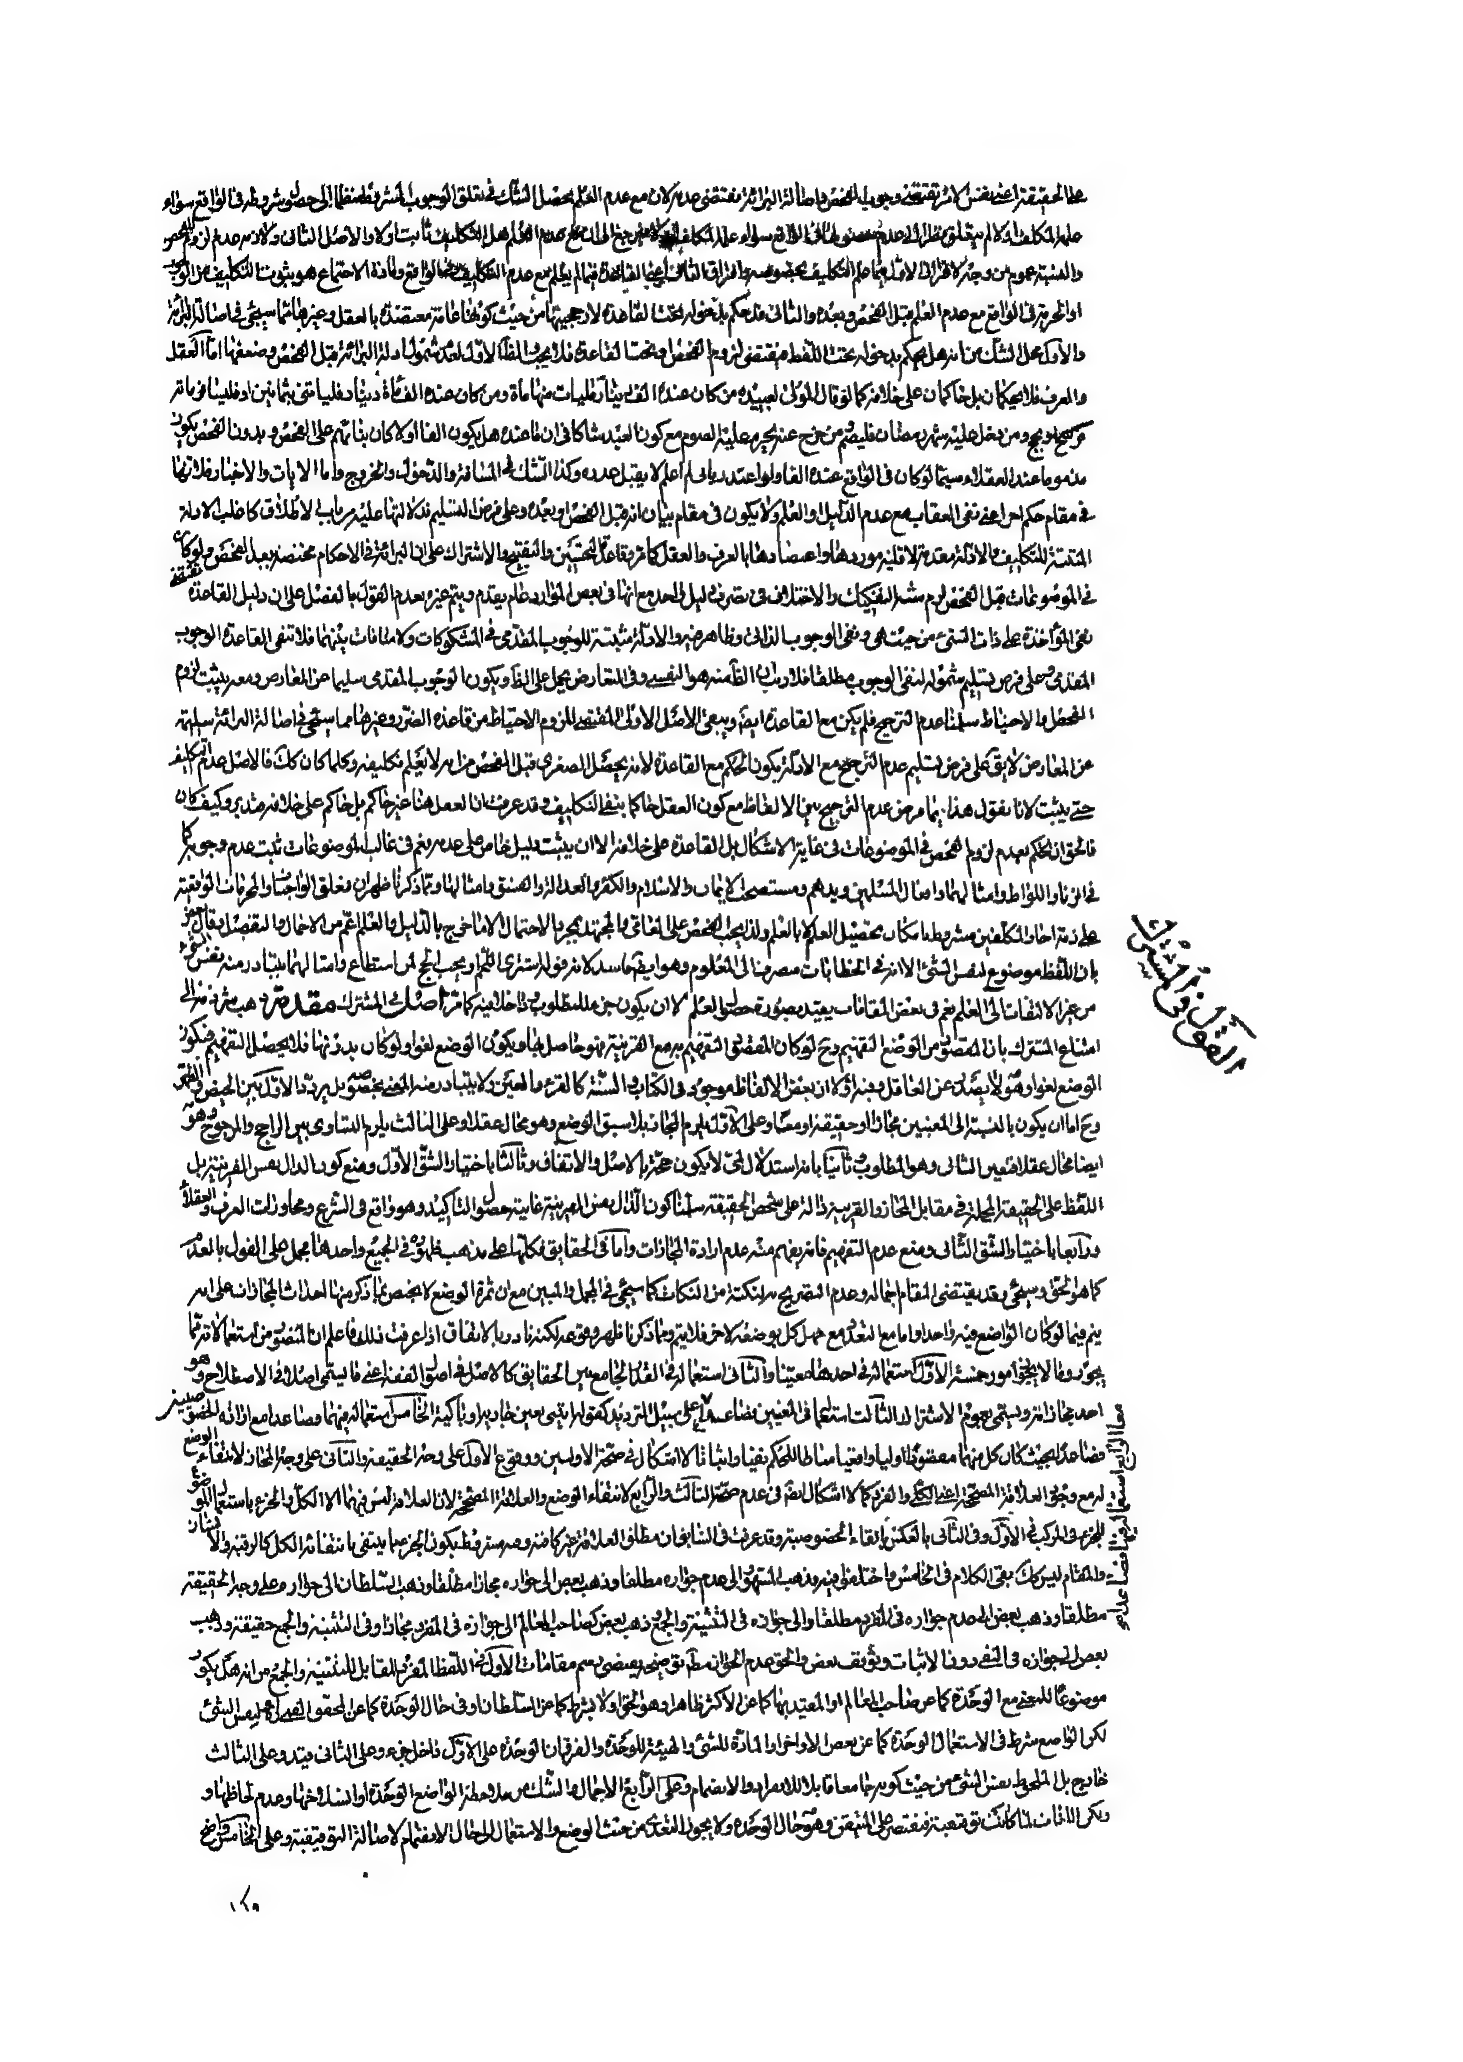 على الحقيقة اعنى نفس الامر تقتضى وجوب الفحص واصالة البرائة تقتضى عدمه لان مع عدم العلم يحصل الشك فى تعلق الوجوب المشروط نظرا الى حصول شروطه فى الواقع سواء
علمه المكلف او لا لم يتعلق نظرا الى عدم حصولها فى الواقع سواء علمه المكلف مع عدم العلم هل التكليف ثابت اولا والاصل الثانى ولازمه عدم لزوم الفحص
والنسبة عموم من وجه لافتراق الاول فيما علم التكليف بخصوصه وافتراق الثانى اعنى القاعدة فيما لم يعلم مع عدم التكليف فى الواقع ومادة الاجتماع هو ثبوت التكليف من الوجوب
او الحرمة فى الواقع مع عدم العلم قبل الفحص وبعده والثانى قد حكم بدخوله تحت القاعدة لارجحيتها من حيث كونها عامة معتضدة بالعقل وغيرها مما سيجئ فى اصالة البرائة
والاول محل الشك من انه هل يحكم بدخوله تحت اللفظ فيقتضى لزوم الفحص او تحت القاعدة فلا يجب والظ الاول لعدم شمول ادلة البرائة قبل الفحص وضعفها اما العقل
والعرف فلا يحكمان بل حاكمان على خلافه كما لو قال المولى لعبيده من كان عنده الف دينار فليات منها مأة ومن كان عنده الف مأة دينار فليات بثمانين
ومن دخل عليه شهر رمضان فليصم ومن خرج عنه يحرم عليه الصوم مع كون العبد شاكا فى ان ما عنده هل يكون الفا او لا كان بنائهم على الفحص وبدون الفحص يكون
مذموما عند العقلاء سيما لو كان فى الواقع عنده الف ولو اعتذر بانى لم اعلم لا يقبل عذره وكذا الشك فى المسافة والدخول والخروج واما الايات والاخبار فلانها
فى مقام حكم اخر اعنى نفى العقاب مع عدم الدليل او العلم ولا يكون فى مقام بيان انه قبل الفحص او بعده وعلى فرض التسليم فدلالتها عليه من باب الاطلاق كاغلب الادلة
المثبتة للتكليف والادلة مقدمة لاقلية موردها واعتضادها بالعرف والعقل كما مر وقاعدة التحسين والتقبيح والاشتراك على ان البرائة فى الاحكام مختصة ببعد الفحص ولو كان
فى الموضوعات قبل الفحص لزم التفكيك والاختلاف فى تصرف دليل واحد مع انها فى بعض الموارد ويتم غيره بعدم القول بالفصل على ان دليل القاعدة تقتضى
نفى المؤاخذة على ذات الشئ من حيث هى ونفى الوجوب الذاتى وظاهر فيه والادلة مثبتة للوجوب المقدمى فى المشكوكات ولا منافات بينهما فلا تنفى القاعدة الوجوب
المقدمى وعلى فرض تسليم شموله لنفى الوجوب مطلقا فلا ريب ان الظ منه هو النفسى وفى التعارض يحمل على الظ ويكون الوجوب المقدمى سليما عن المعارض ومعه يثبت لزوم
الفحص والاحتياط سلمنا عدم الترجيح فلم يكن مع القاعدة ايضا ويبقى الاصل الاولى المقتضى للزوم الاحتياط من قاعدة الضرر وغيرها مما سيجئ فى اصالة البرائة سليمة
عن المعارض لا يق على فرض تسليم عدم الترجيح مع الادلة يكون الحكم مع القاعدة لانه يحصل الصغرى قبل الفحص من انه لا تعلم تكليفه وكلما كان كك فالاصل عدم التكليف
حتى يثبت لانا نقول هذا فيما فرض عدم الترجيح بين الالفاظ مع كون العقل حاكما بنفى التكليف وقد عرفت ان العقل هنا غير حاكم بل حاكم على خلافه فتدبر وكيف كان
فالحق ان الحكم بعدم لزوم الفحص فى الموضوعات فى غاية الاشكال بل القاعدة على خلافه الا ان يثبت دليل خاص على عدمه نعم فى غالب الموضوعات ثبت عدم وجوبه كما
فى الزنا واللواط وامثالهما وافعال المسلمين ويدهم ومستصحب الايمان والاسلام والكفر والعدالة والفسق وامثالها ومما ذكرنا ظهر ان تعلق الواجبات والمحرمات الواقعية
على ذمة احاد المكلفين مشروط بامكان تحصيل العلم لا بالعلم ولذا يجب الفحص على العامى والمجتهد بمجرد الاحتمال الا ما خرج بالدليل والعلم اعم من الاجمال والتفصيل وقال بعض
بان اللفظ موضوع لنفس الشئ الا انه فى الخطابات مصرف الى المعلوم وهو ايضا فاسد لان قوله اشترى اللحم او يجب الحج لمن استطاع وامثالهما يتبادر منه نفس الشئ
من غير الالتفات الى العلم نعم فى بعض المقامات يقيد بصورة حصول العلم لا ان يكون جزء للمطلوب وداخلا فيه كما مر اصل فى المشترك مقدمة ذهب شرذمة الى
امتناع المشترك بان المقصود من الوضع التفهيم وح لو كان المقصود التفهيم به مع القرينة فهو حاصل بها ويكون الوضع لغوا ولو كان بدونها فلا يحصل التفهيم فيكون
الوضع لغوا وهو لا يصدر عن العاقل وفيه اولا ان بعض الالفاظ موجود فى الكتاب والسنة كالقرء والعين ولا يتبادر منه المعنى بخصوصه بل يردد الاول بين الحيض والطهر
وح اما ان يكون بالنسبة الى المعنيين مجازا او حقيقة او معا وعلى الاول يلزم المجاز بلا سبق الوضع وهو محال عقلا وعلى الثالث يلزم التساوى بين الراجح والمرجوح وهو
ايضا محال عقلا فتعين الثانى وهو المطلوب وثانيا بانه استدلال لمى لا يكون حجة بالاصل والاتفاق وثالثا باختيار الشق الاول ومنع كون الدال نفس القرينة بل
اللفظ على الحقيقة المجملة فى مقابل المجاز والقرينة دالة على شخص الحقيقة سلمنا كون الدال نفس القرينة غايته حصول التاكيد وهو واقع فى الشرع ومحاورات العرف والعقلاء
ورابعا باختيار الشق الثانى ومنع عدم التفهيم فانه يفهم منه عدم ارادة المجازات واما فى الحقايق فكلها على مذهب ظهوره فى الجميع واحدها مجمل على القول بالعدم
كما هو الحق وسيجئ وقد يقتضى المقام اجماله وعدم التصريح به لنكتة من النكات كما سيجئ فى المجمل والمبين مع ان ثمرة الوضع لا يختص بما ذكر منها احداث المجازات على انه
يتم فيما لو كان الواضع فيه واحدا واما مع التعدد مع جهل كل بوضعه الاخر فلا يتم ومما ذكرنا ظهر وقوعه لكنه نادر بالاتفاق اذا عرفت ذلك فاعلم ان المقصود من استعمالاته مما
يجوز وما لا يجوز امور خمسة الاول استعماله فى احدهما معينا والثانى استعماله فى القدر الجامع بين الحقايق كالاصل فى اصول الفقه اعنى ما يسمى اصلا فى الاصطلاح وهو
احد مجازاته ويسمى بعموم الاشتراك الثالث استعماله فى المعنيين فصاعدا على سبيل الترديد كقولك ائتنى بعين جارية او باكية الخامس استعماله فيهما فصاعدا مع ارادة الخصوصيتين
فصاعدا بحيث كان كل منهما مقصودا اوليا واقعيا مناطا للحكم نفيا واثباتا لا اشكال فى صحة الاولين ووقوع الاول على وجه الحقيقة والثانى على وجه المجاز لانتفاء الوضع
له مع وجود العلاقة المصححة اعنى الكلى والفرد كما لا اشكال ايضا فى عدم صحة الثالث والرابع لانتفاء الوضع والعلاقة المصححة لان العلاقة ليس فيهما الا الكل والجزء باستعمال الموضوع
للجزء فى المركب فى الاول وفى الثانى بالعكس بالغاء الخصوصية وقد عرفت فى السابق ان مطلق العلاقة غير كافية ومشروط بكون الجزء مما ينتفى بانتفائه الكل كالرقبة والانسان
والمقام ليس كك بقى الكلام فى الخامس واختلفوا فيه فذهب المشهور الى عدم جوازه مطلقا وذهب بعض الى جوازه مجازا مطلقا وذهب السلطان الى جوازه على وجه الحقيقة
مطلقا وذهب بعض الى عدم جوازه فى المفرد مطلقا والى جوازه فى التثنية والجمع وذهب بعض كصاحب المعالم الى جوازه فى المفرد مجازا وفى التثنية والجمع حقيقة وذهب
بعض الى جوازه فى النفى دون الاثبات وتوقف بعض والحق عدم الجواز مطلقا توضيحه يقتضى رسم مقامات الاول فى اللفظ المفرد المقابل للتثنية والجمع من انه هل يكون
موضوعا للمعنى مع الوحدة كما عن صاحب المعالم او المقيد بها كما عن الاكثر ظاهرا وهو الحق او لا بشرط كما عن السلطان او فى حال الوحدة كما عن المحقق القمى او لنفس الشئ
لكن الواضع شرط فى الاستعمال الوحدة كما عن بعض الاواخر او المادة للشئ والهيئة للوحدة والفرق ان الوحدة على الاول داخل جزء وعلى الثانى قيد وعلى الثالث
خارج بل الملحوظ نفس الشئ من حيث كونه جامعا قابلا للانفراد والانضمام وعلى الرابع الاجمال والشك من ملاحظة الواضع الوحدة او انسلاخها وعدم لحاظها و
لكن اللغات لما كانت توقيفية فيقتصر على المتيقن وهو حال الوحدة ولا يجوز التعدى من حيث الوضع والاستعمال الى حال الانضمام لاصالة التوقيفية وعلى الخامس واضح
القول فى المشترك
معا الرابع استعماله فيهما فصاعدا